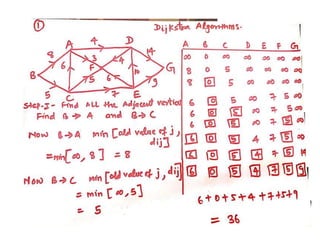 ① Dijkstra Algorithms.
A 4 D
8 6 3 4 14
B F 10 G
5 5 6 9
C 7 E
Step-I - Find ALL the Adjecent vertice
Find B → A and B → C
Now B → A min [old value of j,
dij]
= min [∞, 8] = 8
Now B → C min [old value of j, dij]
= min [∞, 5]
= 5
A B C D E F G
∞ 0 ∞ ∞ ∞ ∞ ∞
8 0 5 ∞ ∞ ∞ ∞
8 0 5 ∞ ∞ ∞ ∞
6 0 5 ∞ 7 5 ∞
6 0 5 ∞ 7 5 ∞
6 0 5 ∞ 7 5 ∞
6 0 5 4 7 5 ∞
6 0 5 4 7 5 14
6 0 5 4 7 5 9
6+0+5+4+7+5+9
= 36